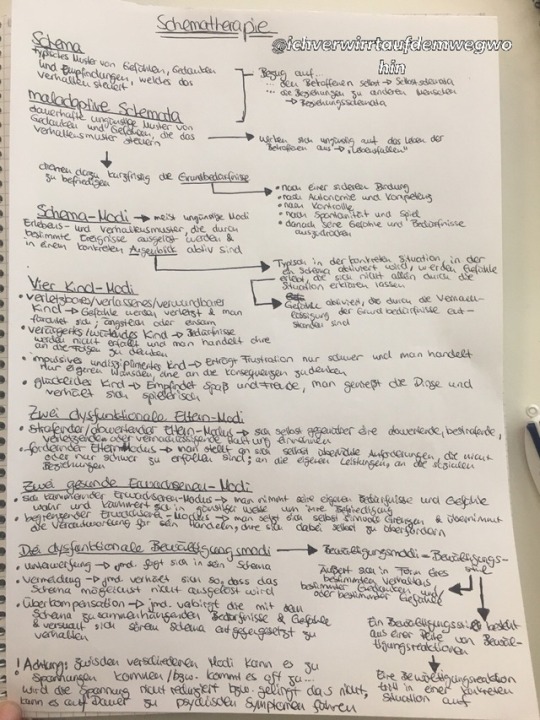 Schematherapie
@ichverwirrtaufdemwegwo
hin
Schema
typisches Muster von Gefühlen, Gedanken
und Empfindungen, welches das
Verhalten steuert
Bezug auf...
... den Betroffenen selbst → Selbstschemata
... die Beziehungen zu anderen Menschen
→ Beziehungsschemata
maladaptive Schemata
dauerhafte ungünstige Muster von
Gedanken und Gefühlen, die das
Verhaltensmuster steuern
→ wirken sich ungünstig auf das Leben der
Betroffenen aus → "Lebensfallen"
dienen dazu kurzfristig die Grundbedürfnisse
zu befriedigen
• nach einer sicheren Bindung
• nach Autonomie und Kompetenz
• nach Kontrolle
• nach Spontanität und Spiel
• danach seine Gefühle und Bedürfnisse
auszudrücken
Schema-Modi → meist ungünstige Modi
Erlebens- und Verhaltensmuster, die durch
bestimmte Ereignisse ausgelöst werden &
in einem konkreten Augenblick aktiv sind
Typisch in der konkreten Situation, in der
ein Schema aktiviert wird, werden Gefühle
erlebt, die sich nicht allein durch die
Situation erklären lassen
Gefühle aktiviert, die durch die Vernach-
lässigung der Grundbedürfnisse ent-
standen sind
Vier Kind-Modi
• verletzbares/verlassenes/verwundbares
Kind → Gefühle werden verletzt & man
fürchtet sich, ängstlich oder einsam
• verärgertes/wütendes Kind → Bedürfnisse
werden nicht erfüllt und man handelt ohne
an die Folgen zu denken
• impulsives undiszipliniertes Kind → Erträgt Frustration nur schwer und man handelt
nur eigenen Wünschen, ohne an die Konsequenzen zu denken
• glückliches Kind → Empfindet Spaß und Freude, man genießt die Dinge und
verhält sich spielerisch
Zwei dysfunktionale Eltern-Modi
• strafender/abwertender Eltern-Modus → sich selbst gegenüber eine abwertende, bestrafende,
verletzende oder vernachlässigende Haltung einnehmen
• fordernder Eltern-Modus → man stellt an sich selbst überhöhte Anforderungen, die nicht
oder nur schwer zu erfüllen sind; an die eigenen Leistungen, an die sozialen
Beziehungen
Zwei gesunde Erwachsenen-Modi
• sich kümmernder Erwachsenen-Modus → man nimmt seine eigenen Bedürfnisse und Gefühle
wahr und kümmert sich in günstiger Weise um ihre Befriedigung
• begrenzender Erwachsenen-Modus → man setzt sich selbst sinnvolle Grenzen & übernimmt
die Verantwortung für sein Handeln, ohne sich dabei selbst zu überfordern
Drei dysfunktionale Bewältigungsmodi → Bewältigungsmodi = Bewältigungs-
stil
• Unterwerfung → jmd. fügt sich in sein Schema
• Vermeidung → jmd. verhält sich so, dass das
Schema möglichst nicht ausgelöst wird
• Überkompensation → jmd. verbirgt die mit dem
Schema zusammenhängenden Bedürfnisse & Gefühle
& versucht sich seinem Schema entgegengesetzt zu
verhalten
äußert sich in Form eines
bestimmten Verhaltens
bestimmter Gedanken und
oder bestimmter Gefühle
Ein Bewältigungsstil besteht
aus einer Reihe von Bewäl-
tigungsreaktionen
Eine Bewältigungsreaktion
tritt in einer konkreten
Situation auf
! Achtung: zwischen verschiedenen Modi kann es zu
Spannungen kommen/bzw. kommt es oft zu...
wird die Spannung nicht reduziert bzw. gelingt das nicht,
kann es auf Dauer zu psychischen Symptomen führen